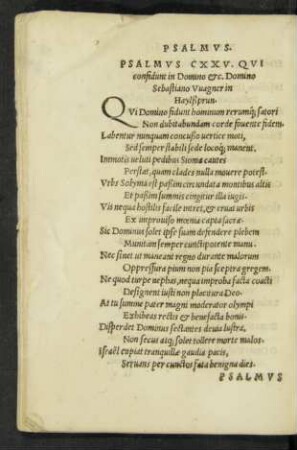 PSALMVS.
PSALMVS CXXV. QVI
confidunt in Domino &c. Domino
Sebastiano Vuagner in
Haylsprun.
QVi Domino fidunt hominum rerumq; satori
Non dubitabundam corde fouente fidem.
Labentur nunquam concusso uertice mõti,
Sed semper stabili sede locoq; manent.
Immotis ueluti pedibus Sionia cautes
Perstat, quam clades nulla mouere potest.
Vrbs Solyma est passim circundata montibus altis
Et passim summis cingitur illa iugis.
Vis ne qua hostilis facile intret, & arua urbis
Ex improuiso mœnia capta sacræ.
Sic Dominus solet ipse suam defendere plebem
Munitam semper cunctipotente manu.
Nec sinet ut maneant regno durante malorum
Oppressura pium non pia sceptra gregem.
Ne quod turpe nephas, neque improba facta coacti
Designent iusti non placitura Deo.
At tu summe pater magni moderator olympi
Exhibeas rectis & benefacta bonis.
Disperdet Dominus sectantes deuia lustra,
Non secus atq; solet tollere morte malos.
Israël capiat tranquillæ gaudia pacis,
Seruans per cunctos fata benigna dies.
PSALMVS